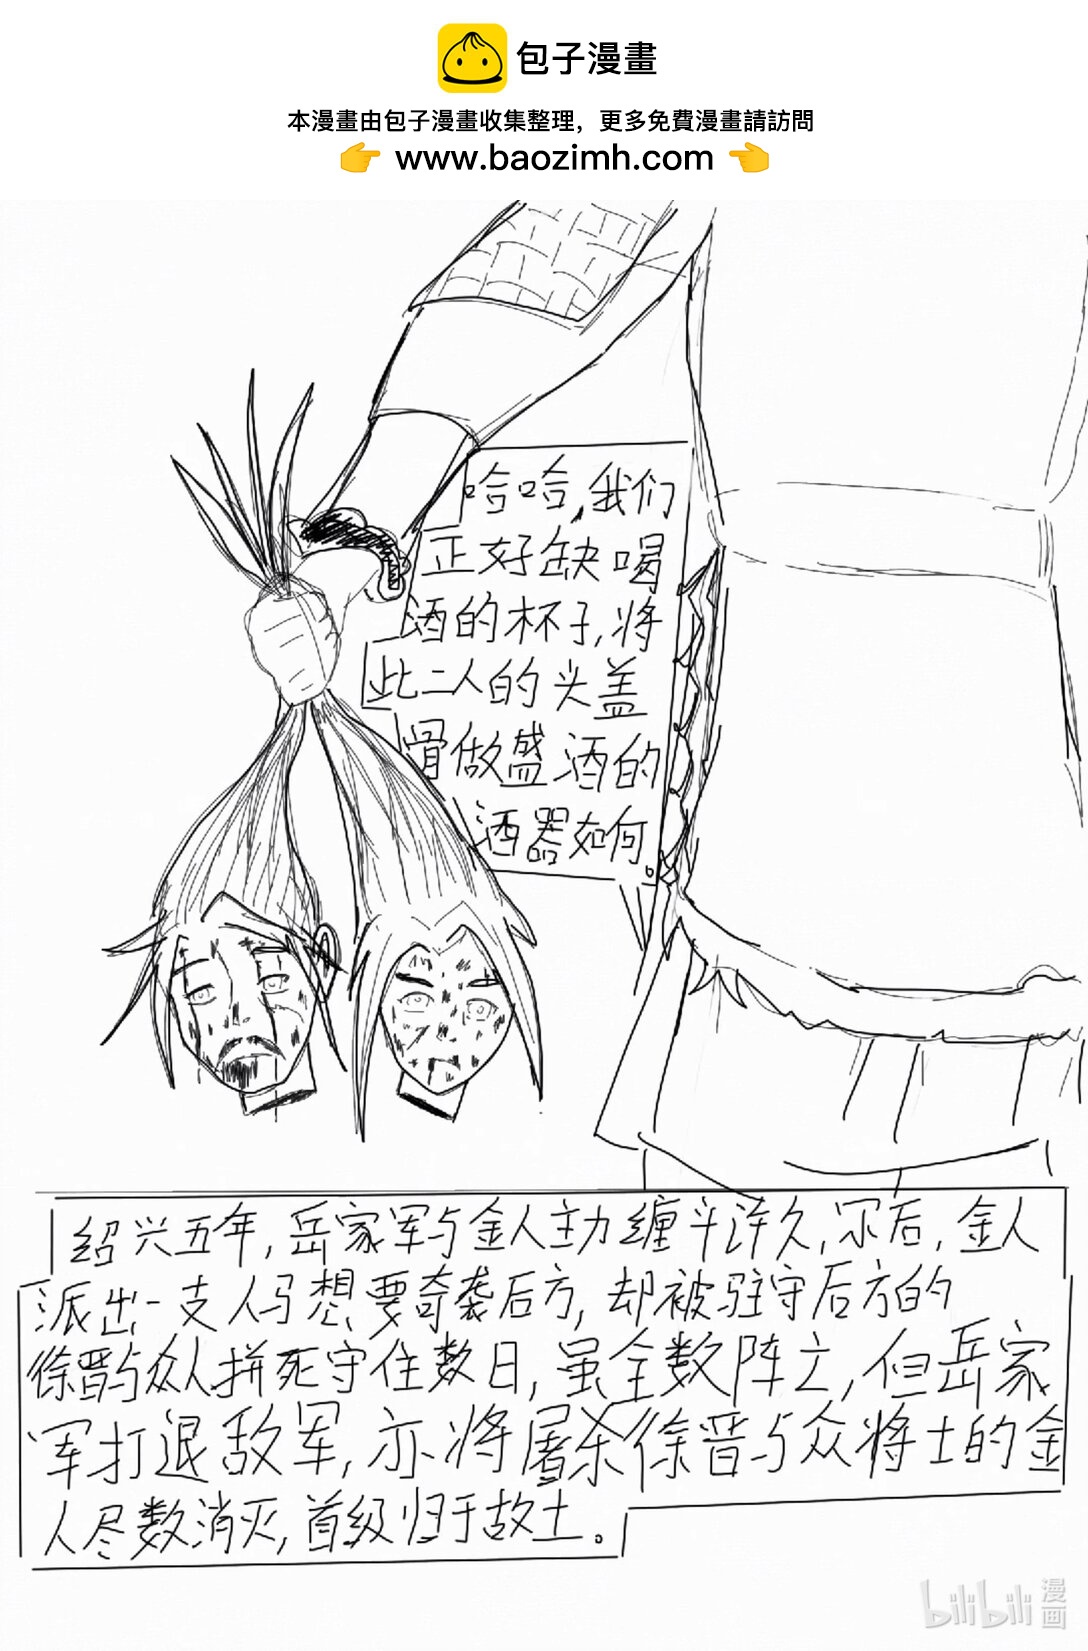 包子漫畫
本漫畫由包子漫畫收集整理，更多免費漫畫請訪問
👉 www.baozimh.com 👈
哈哈，我们
正好缺喝
酒的杯子，将
此二人的头盖
骨做盛酒的
酒器如何。
绍兴五年，岳家军与金人主力缠斗许久，尔后，金人
派出一支人马想要奇袭后方，却被驻守后方的
徐晋与众人拼死守住数日，虽全数阵亡，但岳家
军打退敌军，亦将屠杀徐晋与众将士的金
人尽数消灭，首级归于故土。
bilibili 漫画